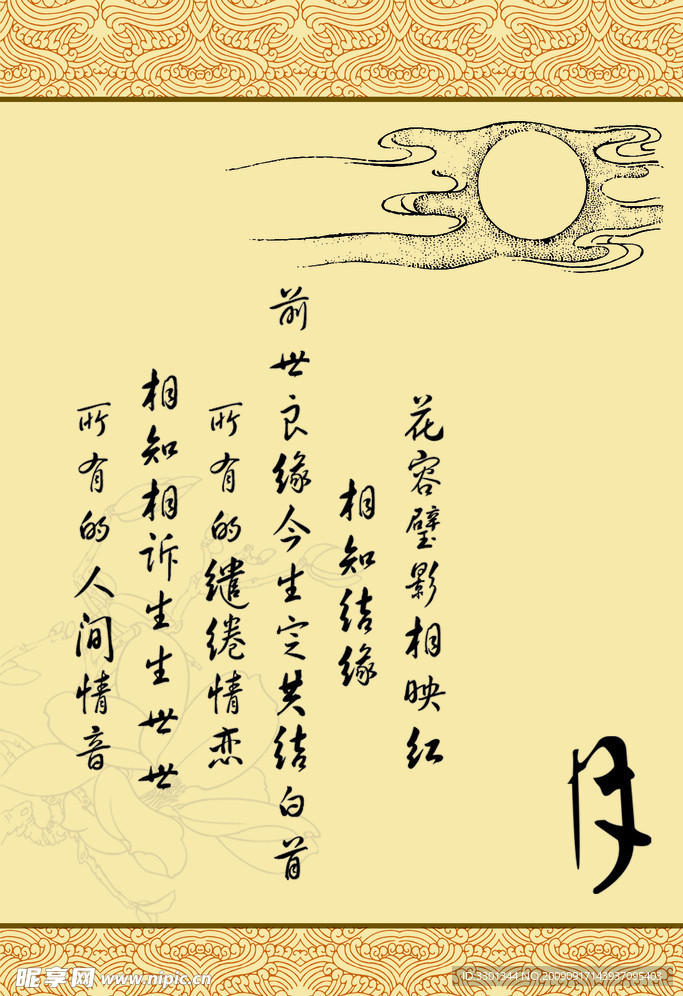 月
花容璧影相映红
相知结缘
前世良缘今生定共结白首
所有的缱绻情恋
相知相诉生生世世
所有的人间情音
昵享网 www.nipic.cn
ID:3301344 NO:20090917143937095403